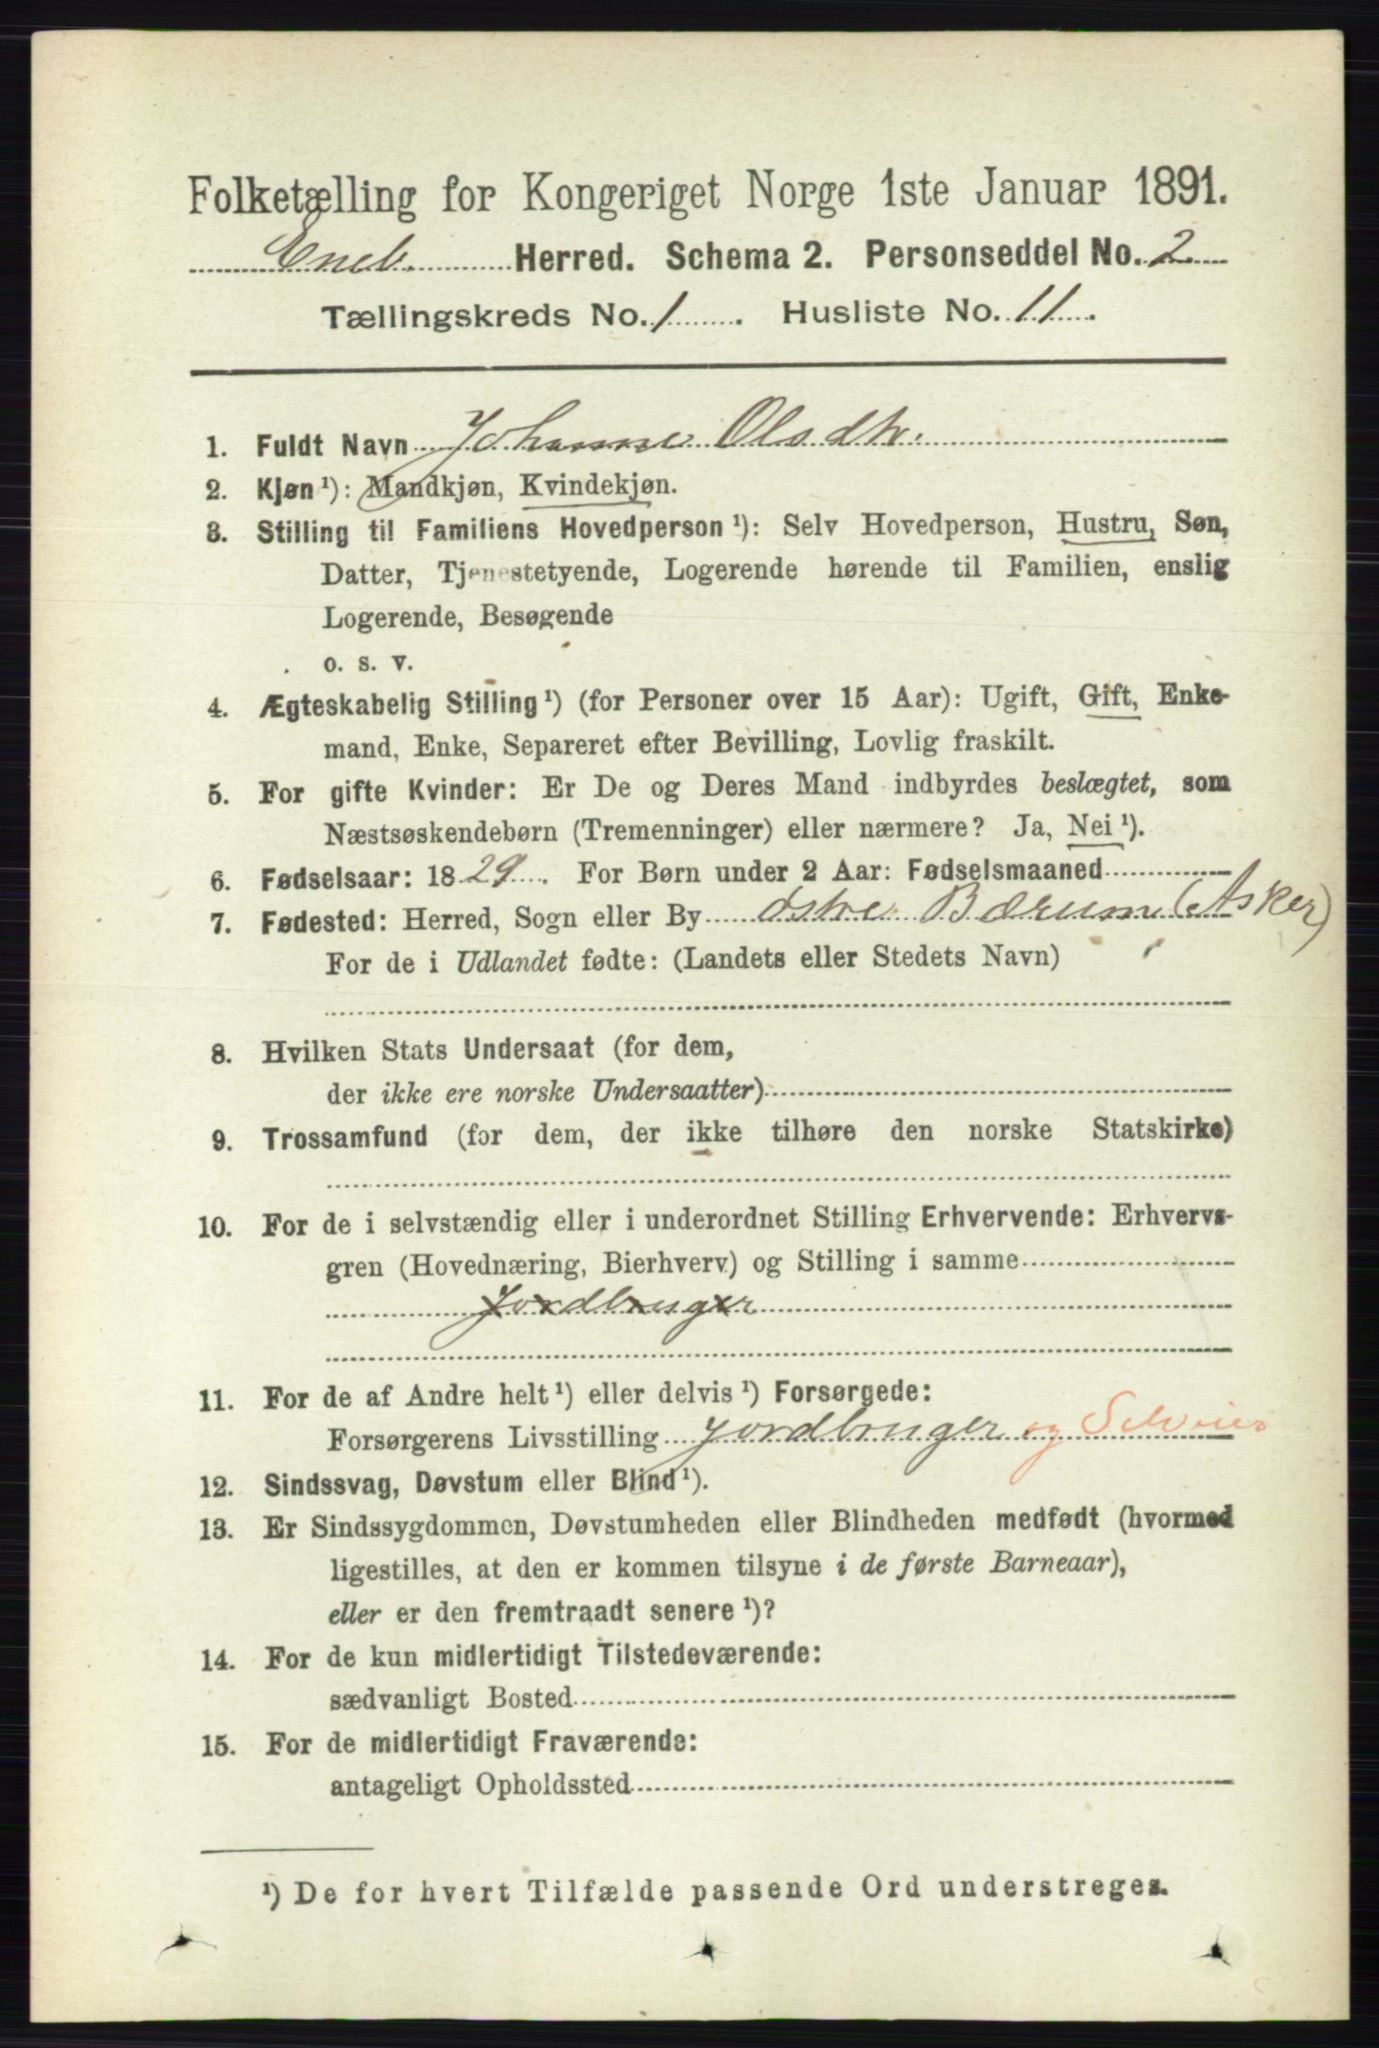 Folketælling for Kongeriget Norge 1ste Januar 1891.
Eneb. Herred. Schema 2. Personseddel No. 2
Tællingskreds No. 1. Husliste No. 11.
1. Fuldt Navn Johanne Olsdtr.
2. Kjøn¹): Mandkjøn, Kvindekjøn.
3. Stilling til Familiens Hovedperson¹): Selv Hovedperson, Hustru, Søn,
Datter, Tjenestetyende, Logerende hørende til Familien, enslig
Logerende, Besøgende
o. s. v.
4. Ægteskabelig Stilling¹) (for Personer over 15 Aar): Ugift, Gift, Enke-
mand, Enke, Separeret efter Bevilling, Lovlig fraskilt.
5. For gifte Kvinder: Er De og Deres Mand indbyrdes beslægtet, som
Næstsøskendebørn (Tremenninger) eller nærmere? Ja, Nei¹).
6. Fødselsaar: 1829. For Børn under 2 Aar: Fødselsmaaned
7. Fødested: Herred, Sogn eller By østre Bærum (Asker)
For de i Udlandet fødte: (Landets eller Stedets Navn)
8. Hvilken Stats Undersaat (for dem,
der ikke ere norske Undersaatter)
9. Trossamfund (for dem, der ikke tilhøre den norske Statskirke)
10. For de i selvstændig eller i underordnet Stilling Erhvervende: Erhvervs-
gren (Hovednæring, Bierhverv) og Stilling i samme
Jordbruger
11. For de af Andre helt¹) eller delvis¹) Forsørgede:
Forsørgerens Livsstilling Jordbruger og Selveier
12. Sindssvag, Døvstum eller Blind¹).
13. Er Sindssygdommen, Døvstumheden eller Blindheden medfødt (hvormed
ligestilles, at den er kommen tilsyne i de første Barneaar),
eller er den fremtraadt senere¹)?
14. For de kun midlertidigt Tilstedeværende:
sædvanligt Bosted
15. For de midlertidigt Fraværende:
antageligt Opholdssted
¹) De for hvert Tilfælde passende Ord understreges.